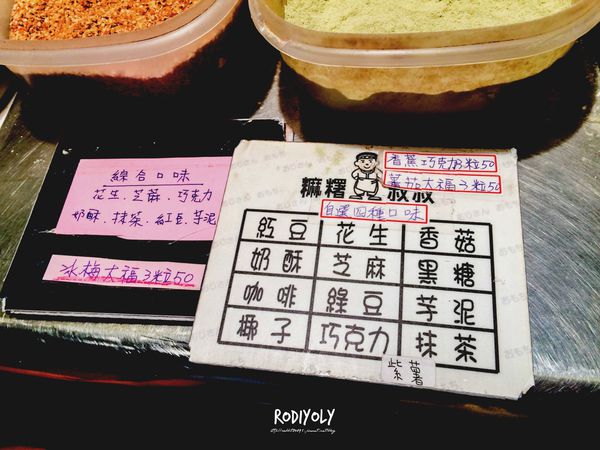 綜合口味
花生、芝麻、巧克力
奶酥、抹茶、紅豆、芋泥
冰梅大福3粒50
香蕉巧克力3粒50
蕃茄大福3粒50
麻糬叔叔
自選四種口味
紅豆 花生 香菇
奶酥 芝麻 黑糖
咖啡 綠豆 芋泥
椰子 巧克力 抹茶
紫薯
RODIYOLY